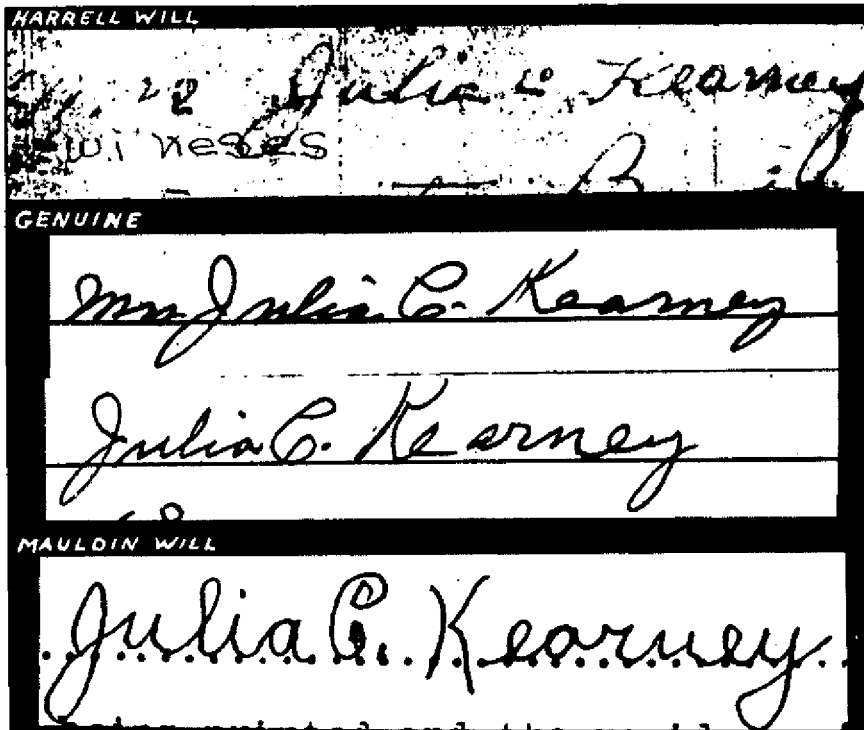 HARRELL WILL
Julia C Kearney
GENUINE
Mrs Julia C. Kearney
Julia C. Kearney
MAULDIN WILL
Julia C. Kearney
and the